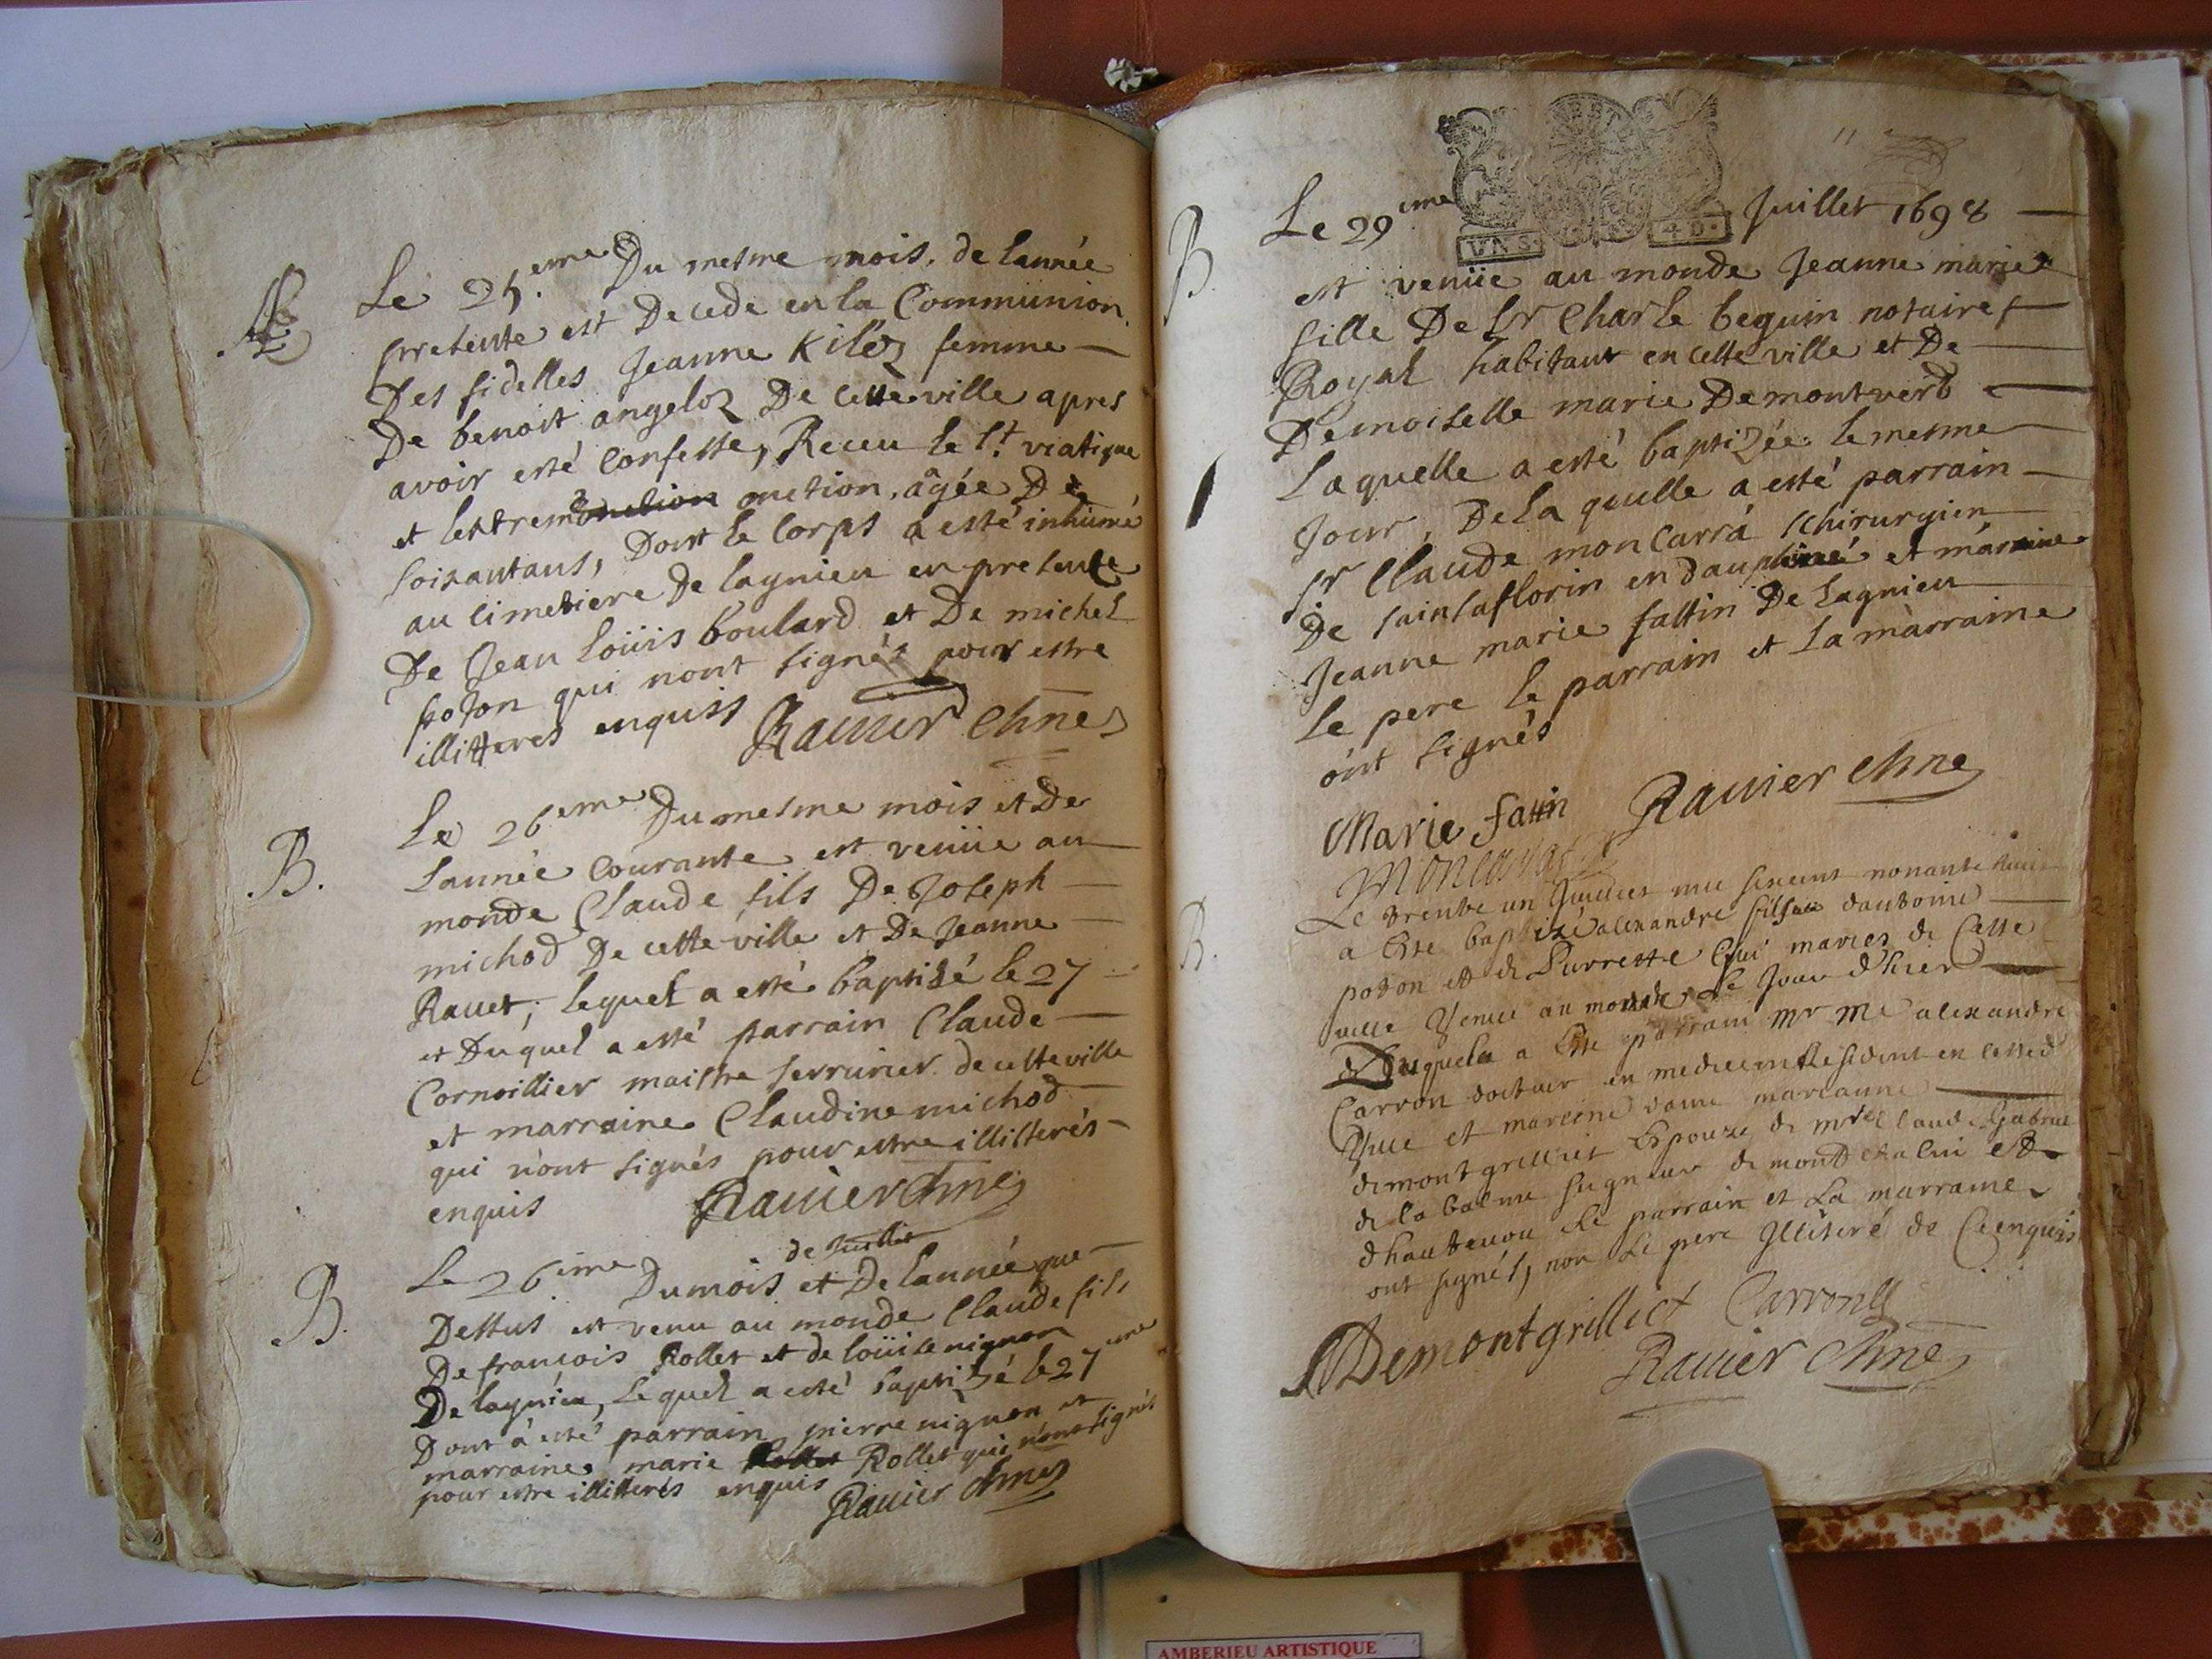 Le 25.eme Du mesme mois, de lannée
presente est Decede en la Communion
Des fidelles Jeanne Kiloz femme
De benoit angeloz De cette ville apres
avoir esté Confesse, Receu le St. viatique
et lextrem onction, âgée De
soixantans, Dont le Corps a esté inhumé
au cimetiere De lagnieu en presente
De Jean Loüis boulard et De michel
poton qui nont signés pour estre
illitteres enquiss Rauier Chne
B. Le 26eme Du mesme mois et De
Lannée Courante est venüe au
monde Claude fils De Joseph
michod De cette ville et De Jeanne
Rauet, lequel a esté baptisé le 27
et Duquel a esté parrain Claude
Cornoillier maistre serrurier de cette ville
et marraine Claudine michod
qui n'ont signés pour estre illitterés
enquis Rauier Chne
de Juillet
B. Le 26ime Du mois et De lannée que
Dessus est venu au monde Claude fils
De francois Rollet et de loüise nignon
De lagnieu, lequel a esté baptizé le 27eme
Dont à esté parrain pierre nignon et
marraine marie Rollet Rollet qui nont signés
pour estre illitterés enquis Rauier chne
VN S. 4 D.
B. Le 29ime Juillet 1698
est venüe au monde Jeanne marie
fille De Sr Charle beguin notaire
Royal habitant en cette ville et De
Demoiselle marie Demontverd
Laquelle a esté baptizée le mesme
Jour, De la quelle a esté parrain
sr Claude moncarra schirurgien
De saint saflorin en dauphiné et marraine
Jeanne marie fattin De Lagnieu
Le pere le parrain et La màrraine
ont signés
Marie fattin Rauier Chne
B. Le trente un Juillet mil sixcent nonante huit
a Este baptizé alexandre fils dantoine
poton et de Pierrette mariez de Cette
uille Venue au monde Le Jour d'hier
Duquel a Este parrain Mr Me alexandre
Carron docteur en medecine Resident en cette
Ville et mareine dame marianne
demontgrillict Espouze de mre Claude Gabriel
de la balme seigneur de et
dhauteuou Le parrain et La marraine
ont signés, non Le pere Illiteré de Ce enquis
Demontgrillict Carron
Rauier Chne
AMBERIEU ARTISTIQUE